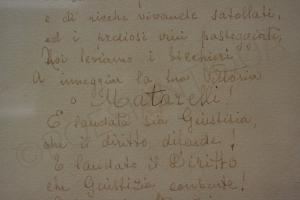 e di ricche vivande satollati,
ed i preziosi vini pasteggianti,
Noi leviamo i bicchieri
A inneggiar la tua Vittoria
o Matarelli!
E laudata sia Giustizia,
che il diritto, difende!
E laudato il Diritto
che Giustizia combatte!